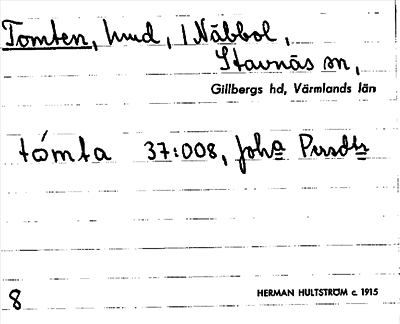 Tomten, hmd, 1 Näbbol,
Stavnäs sn,
Gillbergs hd, Värmlands län
tómta 37:008, Joha Persdtr
8 HERMAN HULTSTRÖM c. 1915